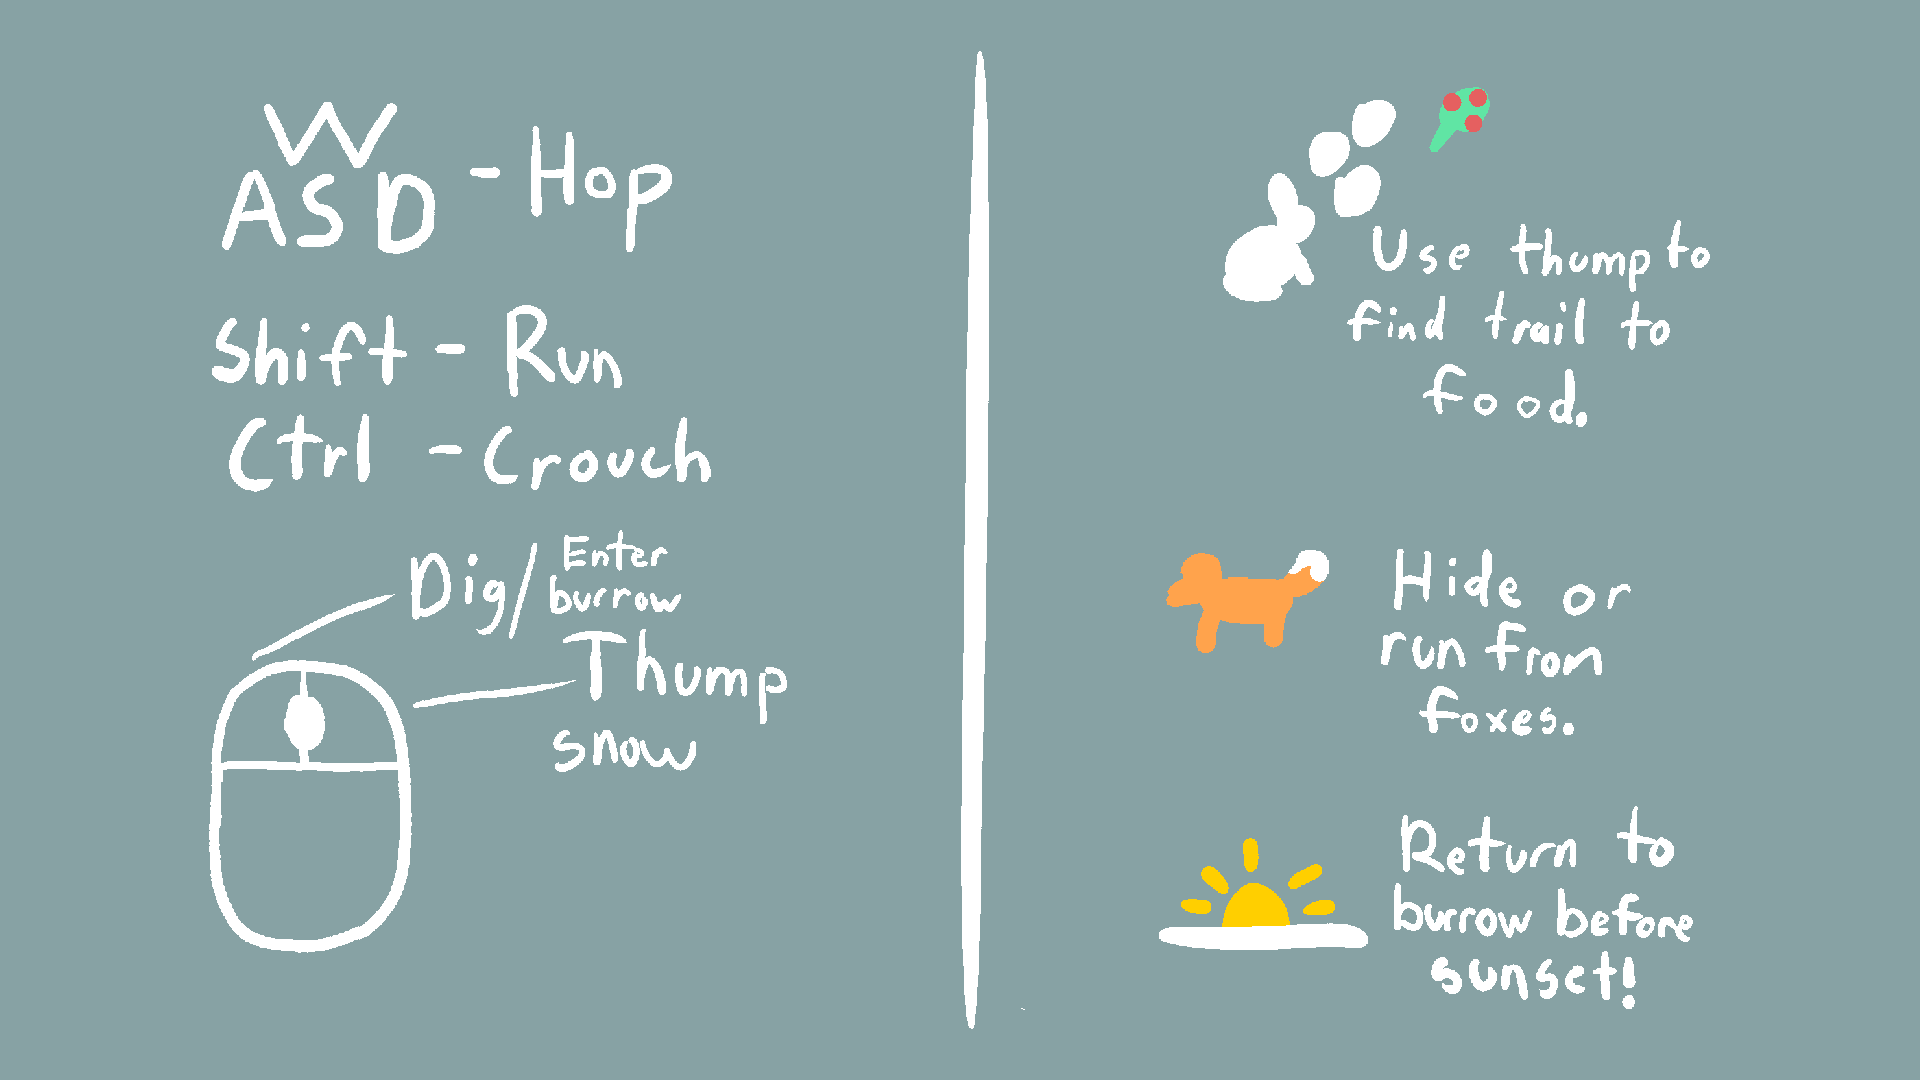 W
ASD - Hop
Shift - Run
Ctrl - Crouch
Dig/Enter
burrow
Thump
snow
Use thump to
find trail to
food.
Hide or
run from
foxes.
Return to
burrow before
sunset!